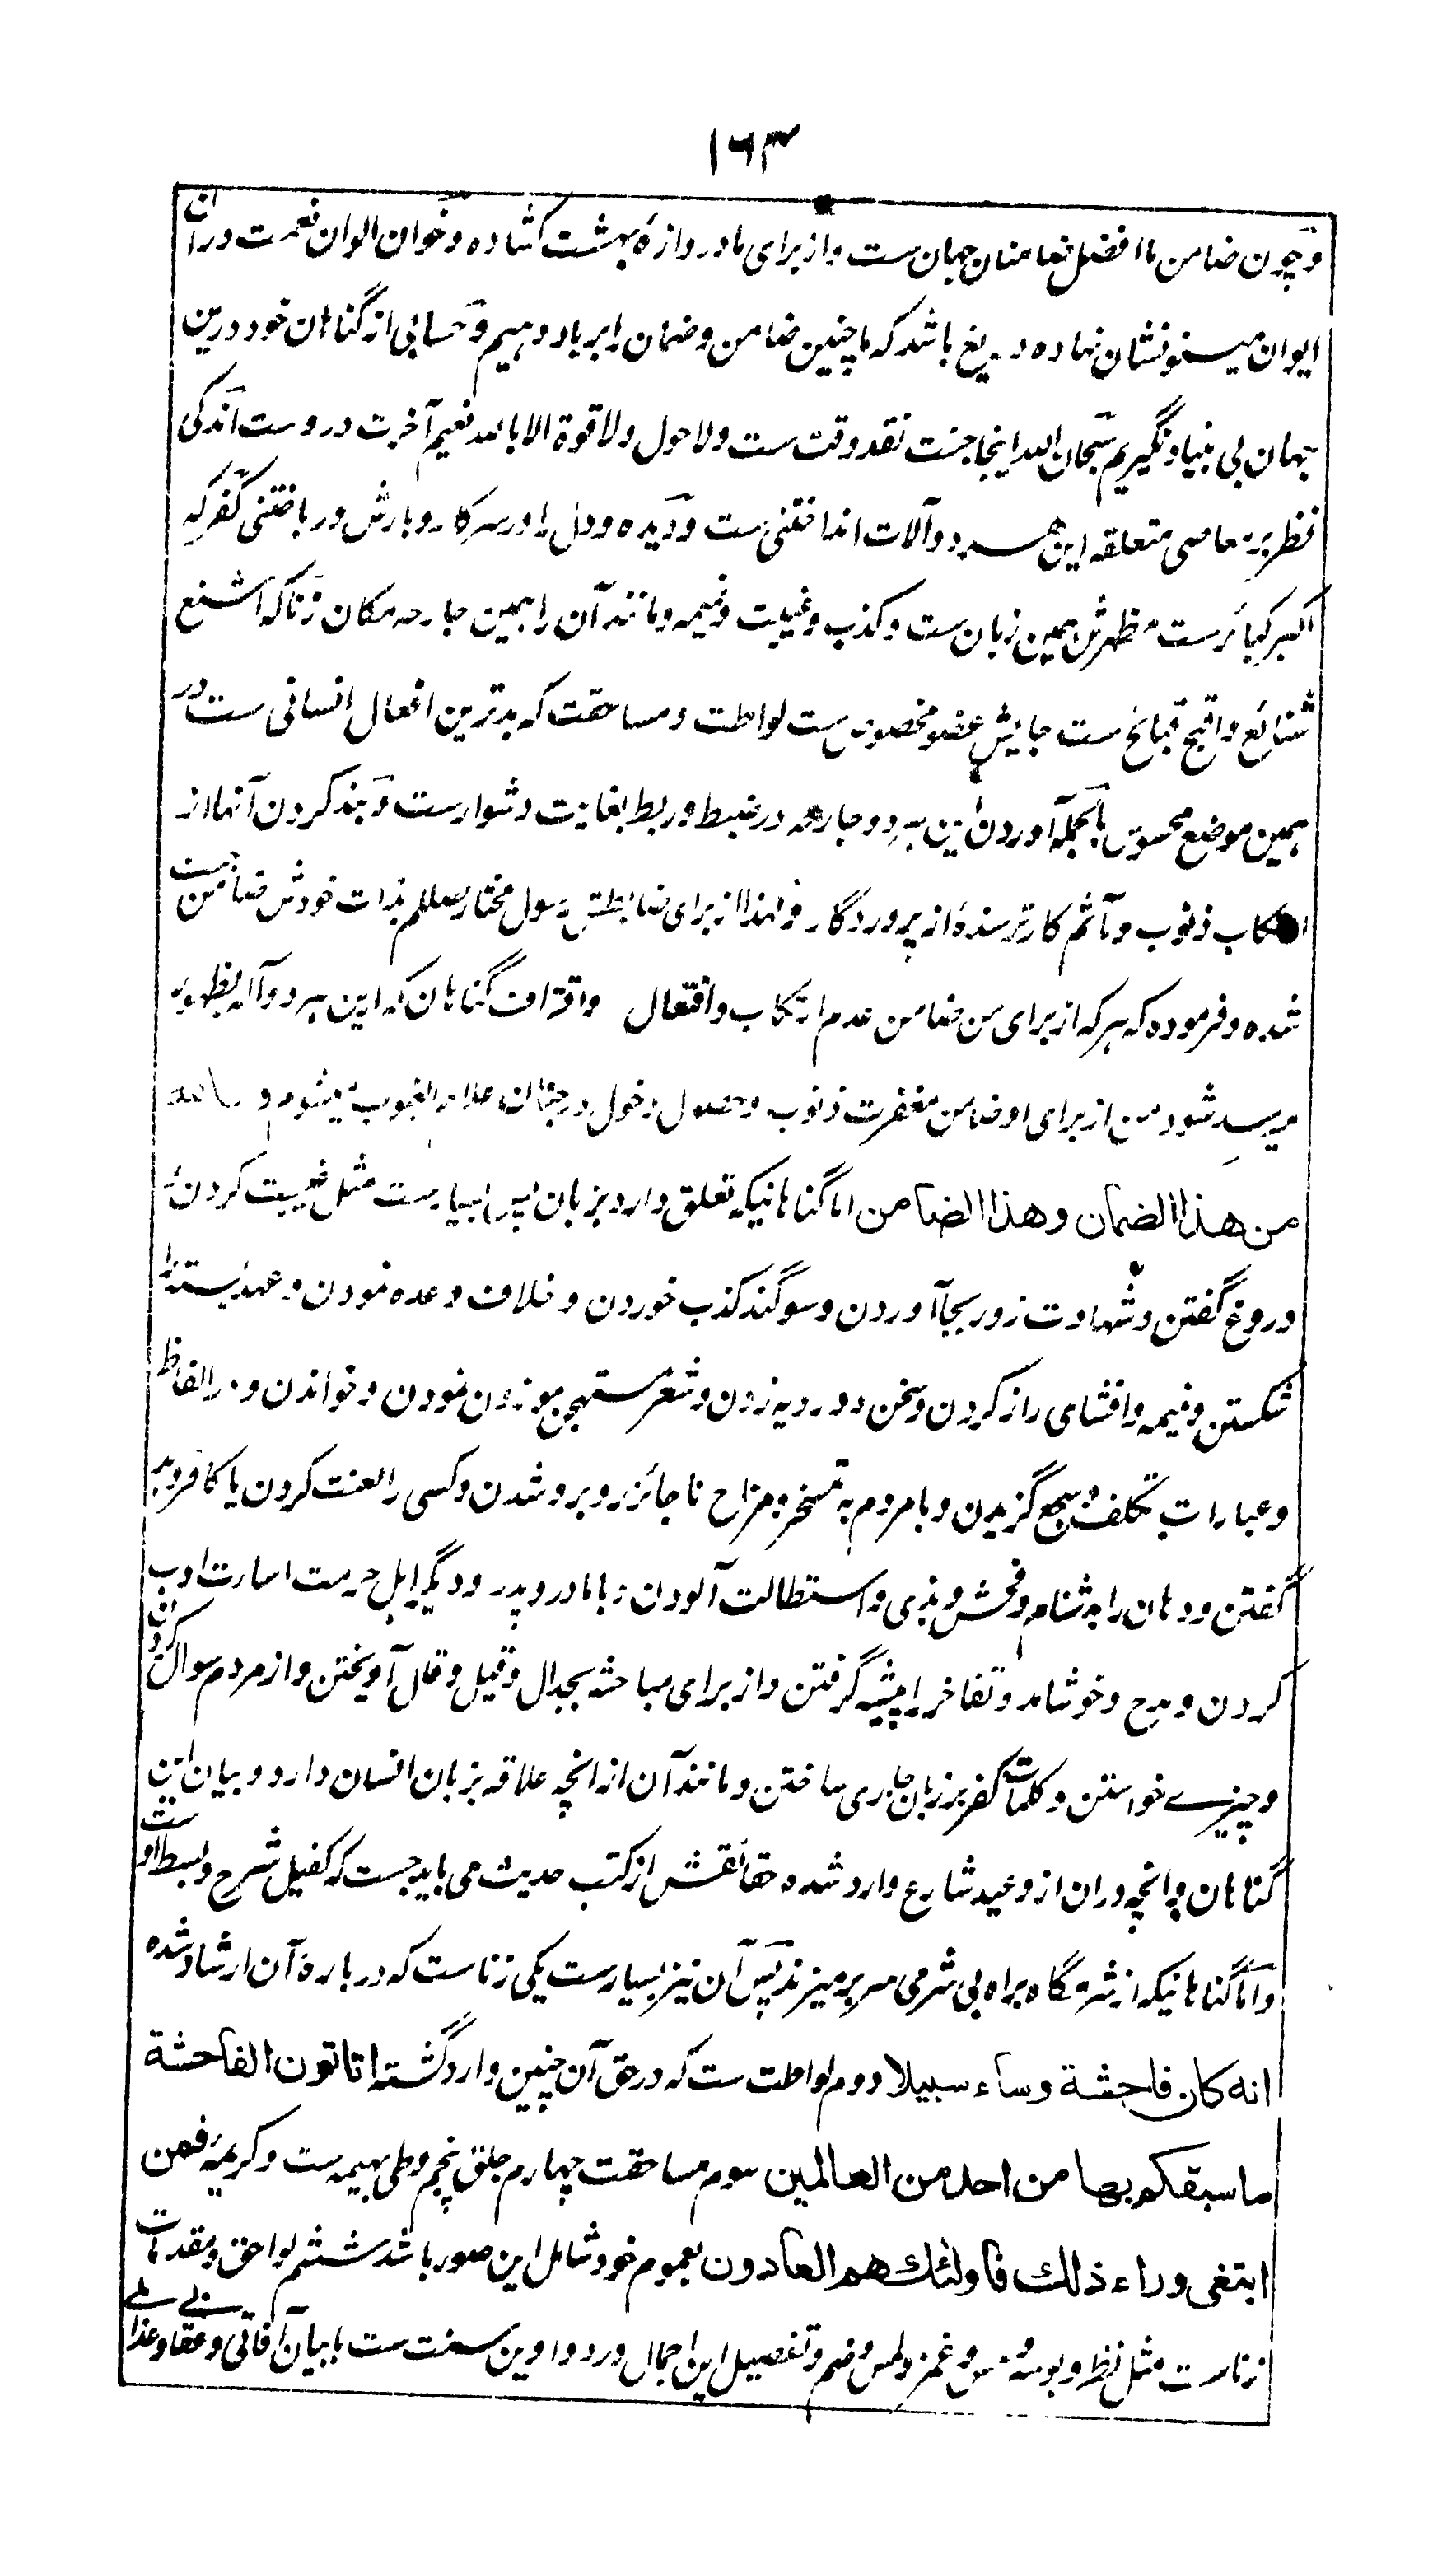 ۱۶۳
و چون ضامن ما افضل ضامنان جهان ست و از برای ما دروازهٔ بهشت کشاده و خوان الوان نعمت در آن
ایوان مینو نشان نهاده دریغ باشد که ما چنین ضامن و ضمان را برباد دهیم و حسابی از گناهان خود درین
جهان بی بنیاد نگیریم سبحان الله اینجا جنت نقد وقت ست ولا حول ولا قوة الا بالله نعیم آخرت در دست اندکی
نظر بر معاصی متعلقه این هر دو آلات انداختنی ست و دیده و دل را در سر کار و بارش در باختنی کفر که
اکبر کبائرست مظهرش همین زبان ست و کذب و غیبت و نمیمه و مانند آن را همین جارحه مکان زنا که اشنع
شنائع و اقبح قبائح ست جایش عضو مخصوص ست لواطت و مساحقت که بدترین افعال انسانی ست در
همین موضع محسوس بالجمله آوردن این هر دو جارحه در ضبط و ربط بغایت دشوارست و بند کردن آنها از
ارتکاب ذنوب و مآثم کار ترسندهٔ از پروردگار و لهذا از برای ضابطش رسول مختار صللم بذات خودش ضامن ست
شده و فرموده که هر که از برای من ضامن عدم ارتکاب و افتعال واقتراف گناهان که ازین هر دو آله بظهور
میرسد شود من از برای او ضامن مغفرت ذنوب و حصول دخول در جنان علام الغیوب میشوم و
من هذا الضمان وهذا الضامن اما گناهانیکه تعلق دارد بزبان پس بسیارست مثل غیبت کردن و
دروغ گفتن و شهادت زور بجا آوردن و سوگند کذب خوردن و خلاف وعده نمودن و عهد بسته را
شکستن و نمیمه و افشای راز کردن و سخن دو رویه زدن و شعر مستهجن موزون نمودن و خواندن و در الفاظ
و عبارات تکلف و سجع گزیدن و با مردم به تمسخر و مزاح ناجائز روبرو شدن و کسی را لعنت کردن یا کافر و بد
گفتن و دهان را بدشنام و فحش و بذی و استطالت آلودن و با مادر و پدر و دیگر اهل حرمت اسارت ادب
کردن و مدح و خوشامد و تفاخر را پیشه گرفتن و از برای مباحثه بجدال و قیل و قال آویختن و از مردم سوال کردن
و چیزے خواستن و کلمات کفر بر زبان جاری ساختن و مانند آن از انچه علاقه بزبان انسان دارد و بیان این
گناهان و انچه دران از وعید شارع وارد شده حقائقش از کتب حدیث می باید جست که کفیل شرح و بسط او ست
و اما گناهانیکه از شرمگاه براه بی شرمی سر بر میزند پس آن نیز بسیارست یکی زناست که در بارهٔ آن ارشاد شده
انه کان فاحشة وساء سبیلا دوم لواطت ست که در حق آن چنین وارد گشته اتاتون الفاحشة
ما سبقکم بها من احد من العالمین سوم مساحقت چهارم جلق پنجم وطی بهیمه ست و کریمهٔ فمن
ابتغی وراء ذلك فاولئك هم العادون بعموم خود شامل این صور باشد ششم لواحق و مقدمات
زناست مثل نظر و بوسه و مس و غمز و لمس و ضم و تفصیل این اجمال در دواوین سنت ست با بیان آفاتی و عقاب و عذابی